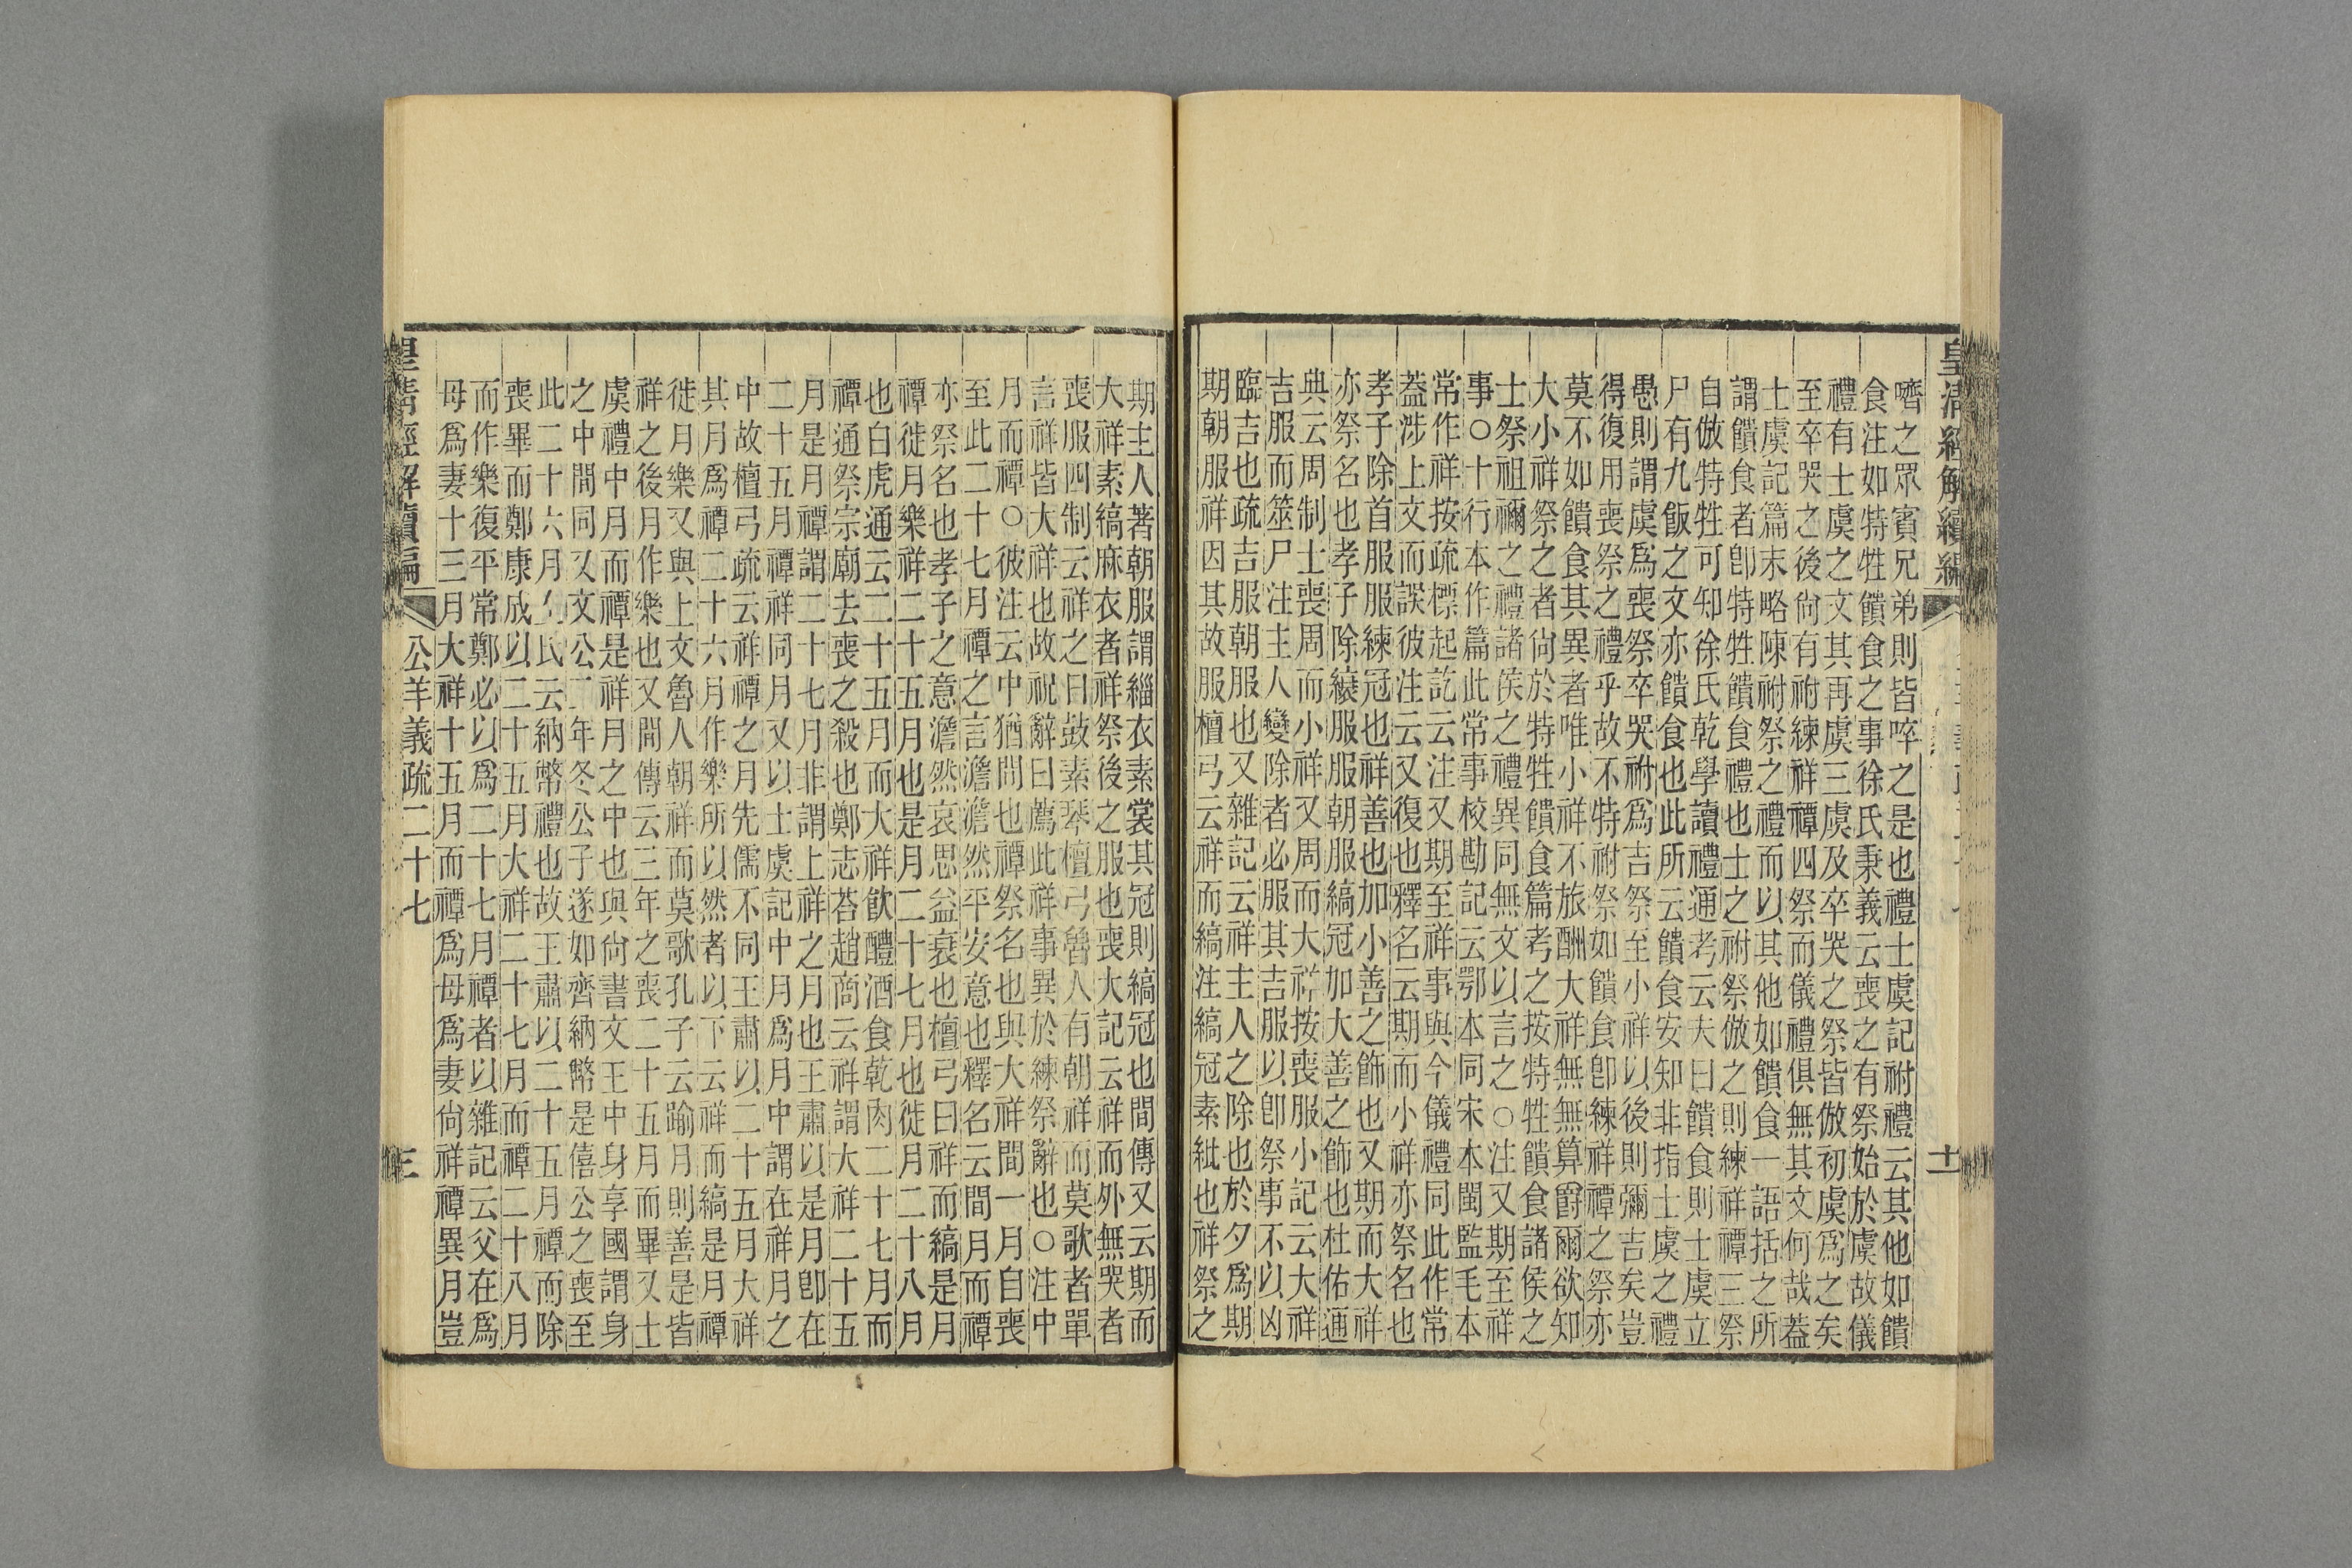 皇清經解續編
十
嚌之眾賓兄弟則皆啐之是也禮士虞記祔禮云其他如饋
食注如特牲饋食之事徐氏秉義云喪之有祭始於虞故儀
禮有士虞之文其再虞三虞及卒哭之祭皆倣初虞爲之矣
至卒哭之後尙有祔練祥禫四祭而儀禮俱無其文何哉葢
士虞記篇末略陳祔祭之禮而以其他如饋食一語括之所
謂饋食者卽特牲饋食禮也士之祔祭倣之則練祥禫三祭
自倣特牲可知徐氏乾學讀禮通考云夫曰饋食則士虞立
尸有九飯之文亦饋食也此所云饋食安知非指士虞之禮
愚則謂虞爲喪祭卒哭祔爲吉祭至小祥以後則彌吉矣豈
得復用喪祭之禮乎故不特祔祭如饋食卽練祥禫之祭亦
莫不如饋食其異者唯小祥不旅酬大祥無無算爵爾欲知
大小祥祭之者尙於特牲饋食篇考之按特牲饋食諸侯之
士祭祖禰之禮諸侯之禮異同無文以言之○注又期至祥
事○十行本作篇此常事校勘記云鄂本同宋本閩監毛本
常作祥按疏標起訖云注又期至祥事與今儀禮同此作常
葢涉上文而誤彼注云又復也釋名云期而小祥亦祭名也
孝子除首服服練冠也祥善也加小善之飾也又期而大祥
亦祭名也孝子除縗服服朝服縞冠加大善之飾也杜佑通
典云周制士喪周而小祥又周而大祥按喪服小記云大祥
吉服而筮尸注主人變除者必服其吉服以卽祭事不以凶
臨吉也疏吉服朝服也又雜記云祥主人之除也於夕爲期
期朝服祥因其故服檀弓云祥而縞注縞冠素紕也祥祭之
期主人著朝服謂緇衣素裳其冠則縞冠也間傳又云期而
大祥素縞麻衣者祥祭後之服也喪大記云祥而外無哭者
喪服四制云祥之日鼓素琴檀弓魯人有朝祥而莫歌者單
言祥皆大祥也故祝辭曰薦此祥事異於練祭辭也○注中
月而禫○彼注云中猶間也禫祭名也與大祥間一月自喪
至此二十七月禫之言澹澹然平安意也釋名云間月而禫
亦祭名也孝子之意澹然哀思益衰也檀弓曰祥而縞是月
禫徙月樂祥二十五月也是月二十七月也徙月二十八月
也白虎通云二十五月而大祥飮醴酒食乾肉二十七月而
禫通祭宗廟去喪之殺也鄭志荅趙商云祥謂大祥二十五
月是月禫謂二十七月非謂上祥之月也王肅以是月卽在
二十五月禫祥同月又以士虞記中月爲月中謂在祥月之
中故檀弓疏云祥禫之月先儒不同王肅以二十五月大祥
其月爲禫二十六月作樂所以然者以下云祥而縞是月禫
徙月樂又與上文魯人朝祥而莫歌孔子云踰月則善是皆
祥之後月作樂也又間傳云三年之喪二十五月而畢又士
虞禮中月而禫是祥月之中也與尙書文王中身享國謂身
之中間同又文公二年冬公子遂如齊納幣是僖公之喪至
此二十六月左氏云納幣禮也故王肅以二十五月禫而除
喪畢而鄭康成以二十五月大祥二十七月而禫二十八月
而作樂復平常鄭必以爲二十七月禫者以雜記云父在爲
母爲妻十三月大祥十五月而禫爲母爲妻尙祥禫異月豈
皇清經解續編
公羊義疏二十七